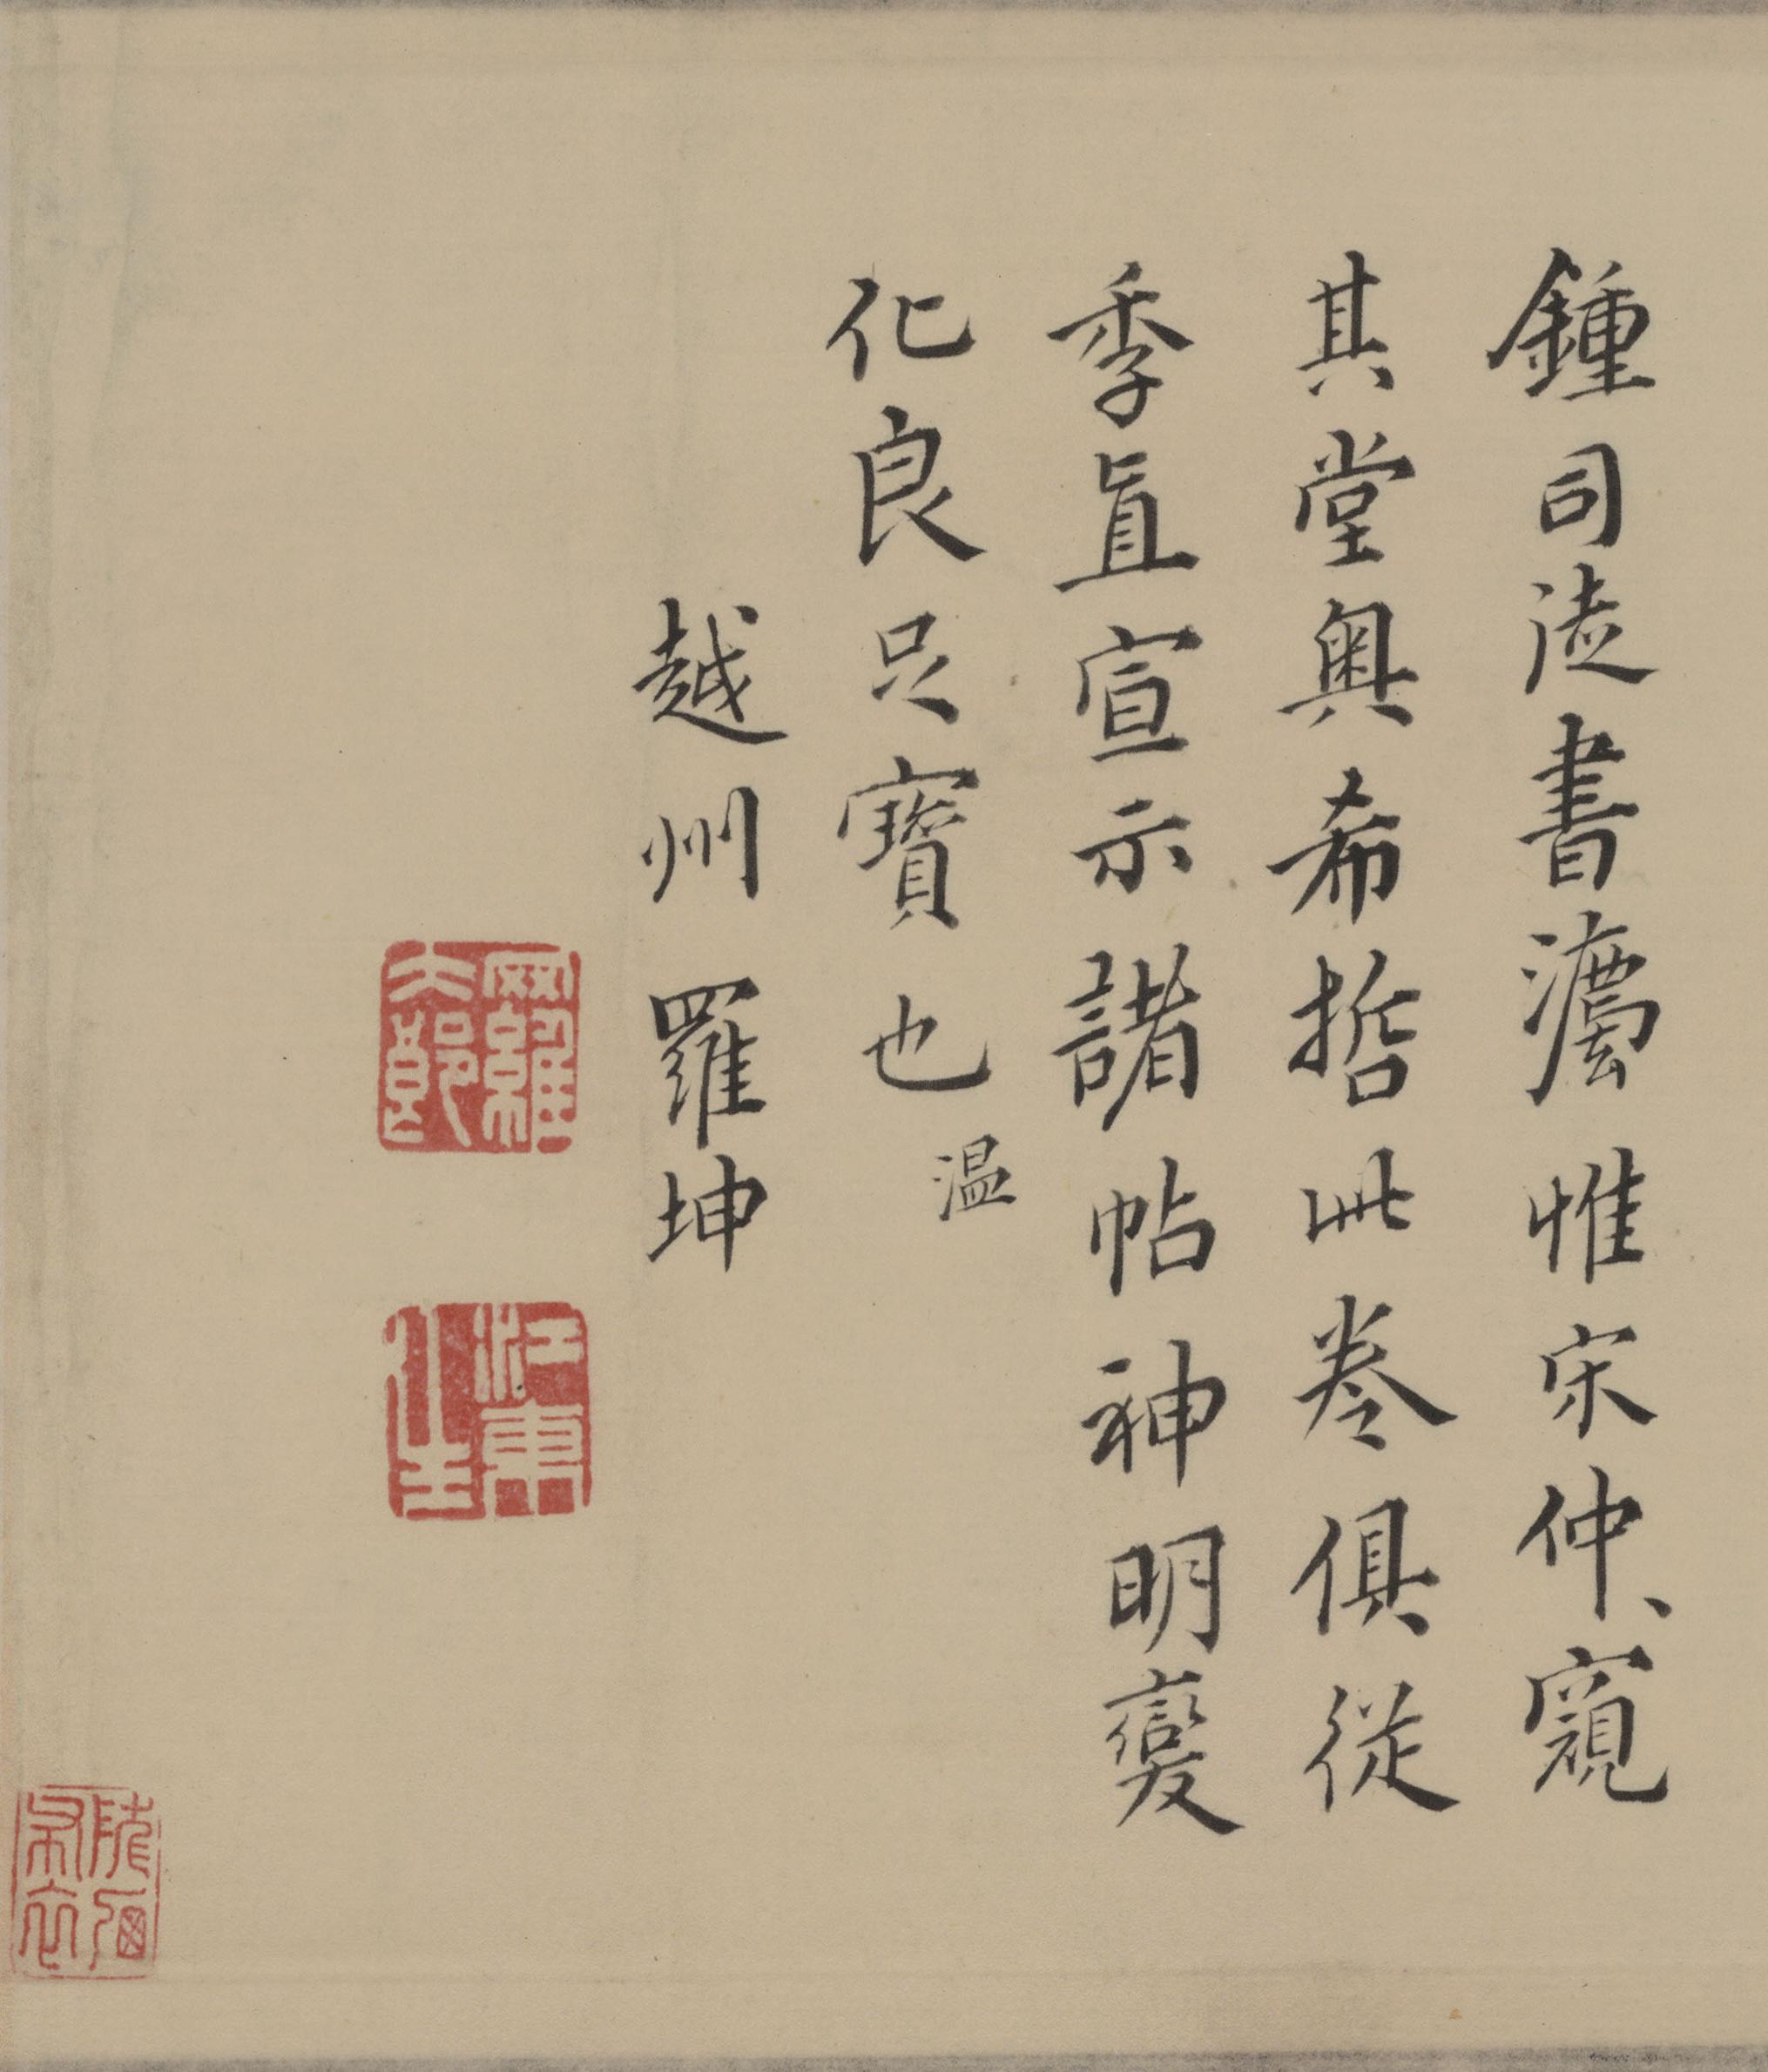 鍾司徒書灋惟宋仲、窺
其堂奧希哲此卷俱從
季直宣示諸帖神明變
化良足寶也
温
越州羅坤